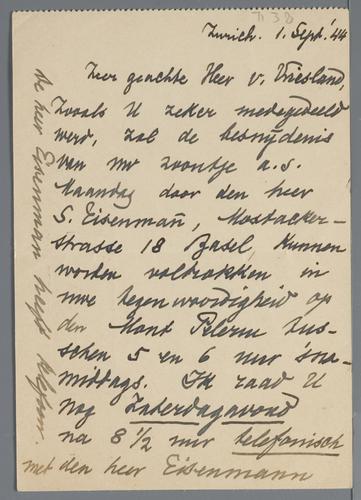 Zurich. 1. Sept. '44
Zeer geachte Heer v. Vriesland,
Zooals U zeker medegedeeld
werd, zal de besnijdenis
van uw zoontje a.s.
Maandag door den heer
S. Eisenmañ, Mostacker-
strasse 18 Basel, kunnen
worden voltrokken in
uwe tegenwoordigheid op
den Mont Pelerin tus-
schen 5 en 6 uur 'sna-
middags. Ik raad U
nog Zaterdagavond
na 8 1/2 uur telefonisch
met den heer Eisenmann
De heer Eisenman heeft